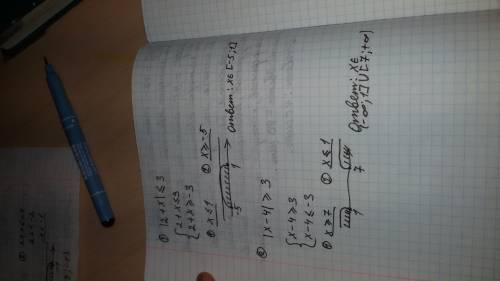 ① |2+x| ≤ 3
{2+x≤3
{2+x≥-3
① x≤1 ② x≥-5
-5 1 ответ: x∈[-5;1]
② |x-4| ≥ 3
{x-4≥3
{x-4≤-3
① x≥7 ② x≤1
1 7 Ответ: x∈
(-∞;1]∪[7;+∞)